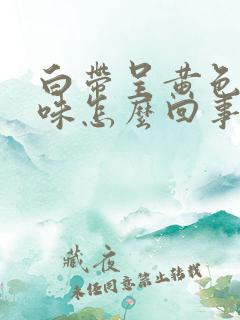 白帶呈黃色
味怎麼回事
藏夜
未经同意禁止转载